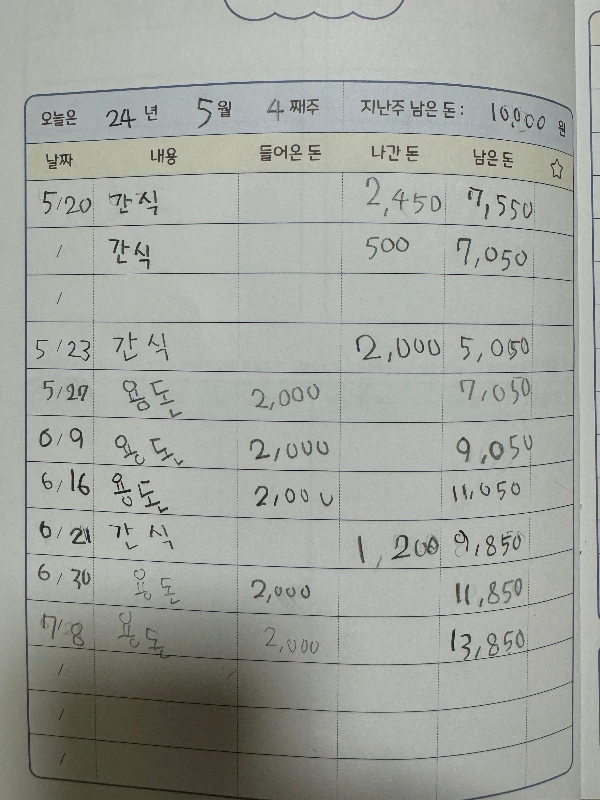 오늘은 24년 5월 4째주 지난주 남은 돈: 10,000 원
날짜 내용 들어온 돈 나간 돈 남은 돈 ☆
5/20 간식 2,450 7,550
/ 간식 500 7,050
/
5/23 간식 2,000 5,050
5/27 용돈 2,000 7,050
6/9 용돈 2,000 9,050
6/16 용돈 2,000 11,050
6/21 간식 1,200 9,850
6/30 용돈 2,000 11,850
7/8 용돈 2,000 13,850
/
/
/